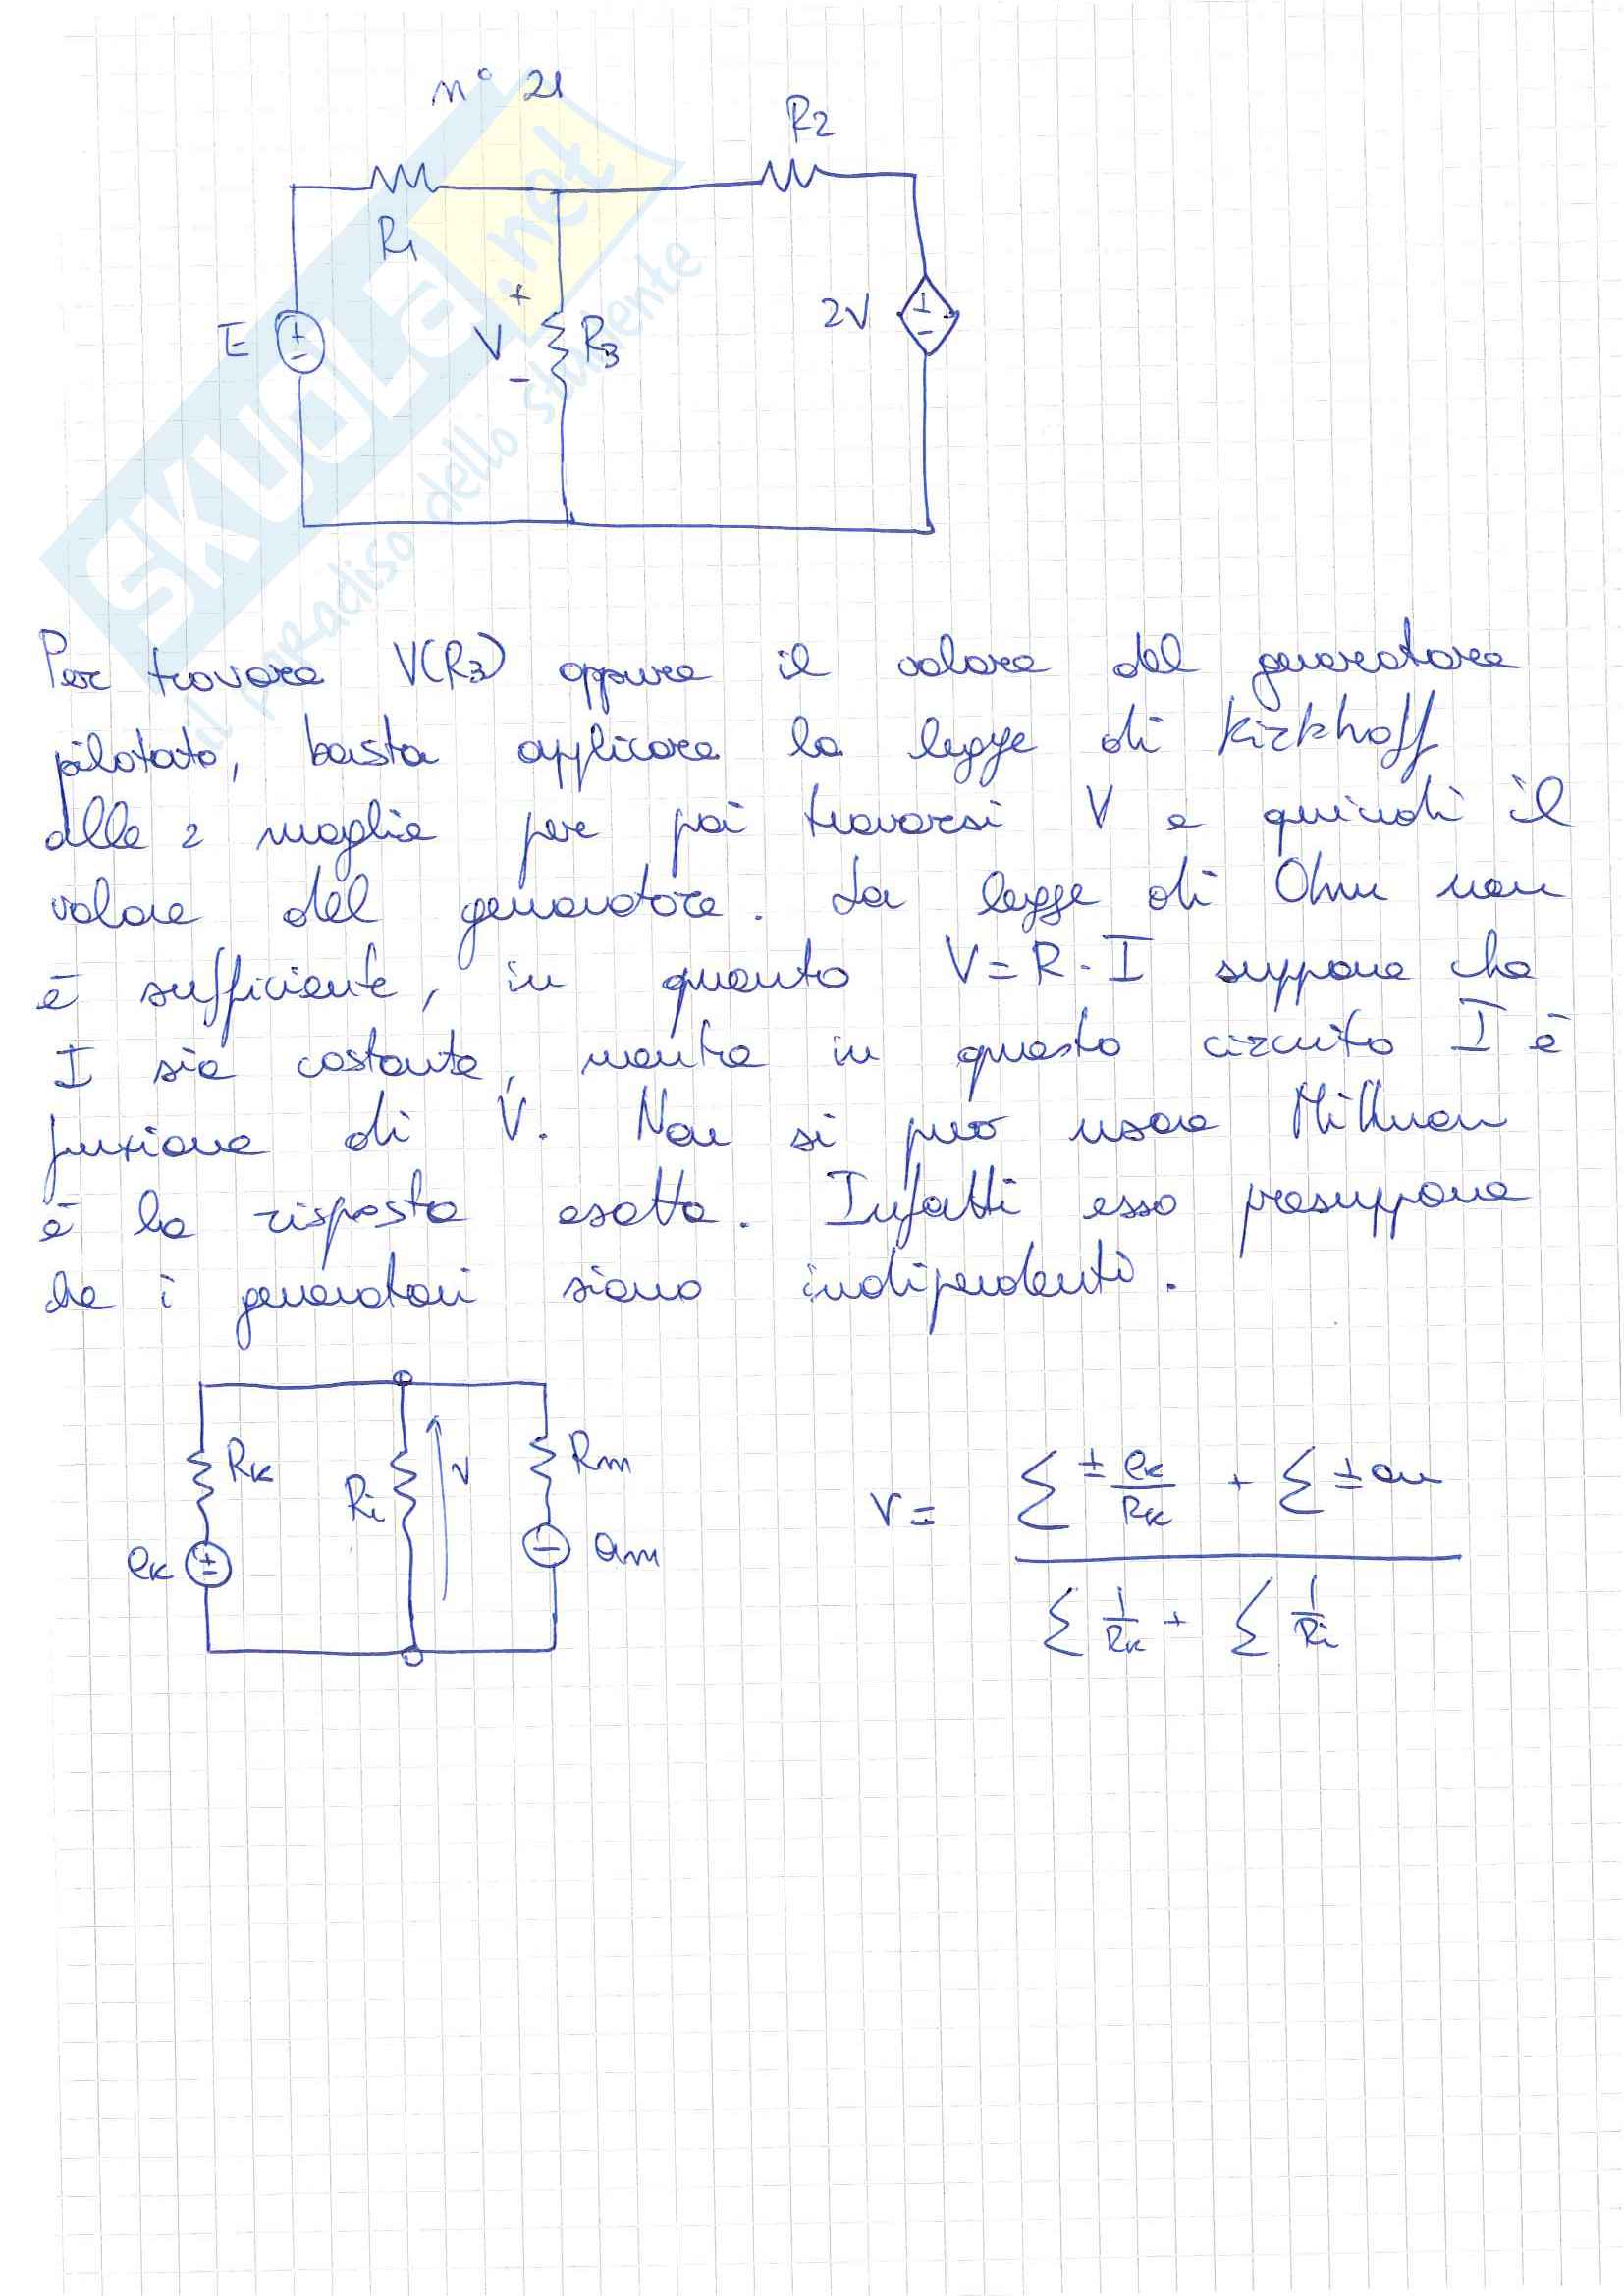 n° 21
R2
R1
E
+
-
V
+
-
R3
2V
+
-
SKUOLA.net
il paradiso dello studente
Per trovare V(R3) oppure il valore del generatore
pilotato, basta applicare la legge di Kirkhoff
alle 2 maglie per poi trovarsi V e quindi il
valore del generatore. La legge di Ohm non
è sufficiente, in quanto V=R·I suppone che
I sia costante, mentre in questo circuito I è
funzione di V. Non si può usare Millman
è la risposta esatta. Infatti esso presuppone
che i generatori siano indipendenti.
Rk
Ri
V
Rm
ek
+
-
-
am
V = ∑ ± ek/Rk + ∑ ± am
∑ 1/Rk + ∑ 1/Ri